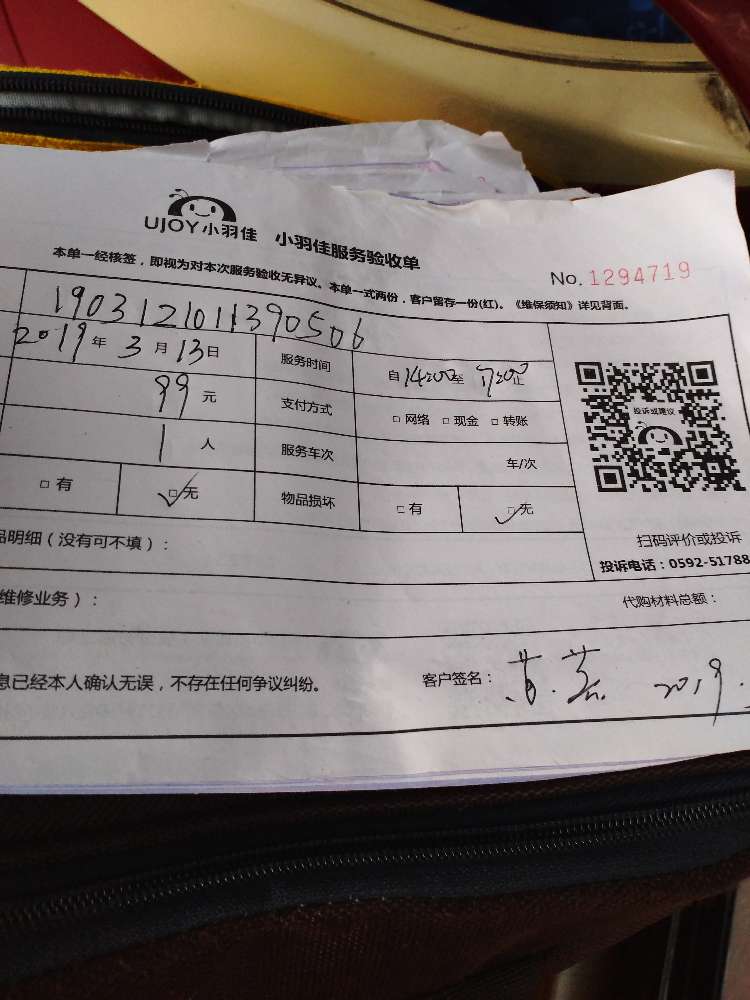 UJOY小羽佳 小羽佳服务验收单
No. 1294719
本单一经核签，即视为对本次服务验收无异议。本单一式两份，客户留存一份(红)。《维保须知》详见背面。
1903121011390506
2019年3月13日 服务时间 自14:00至17:00止
99元 支付方式 □网络 □现金 □转账
1人 服务车次 车/次
□有 ☑无 物品损坏 □有 ☑无
投诉或建议
扫码评价或投诉
投诉电话：0592-51788
品明细（没有可不填）：
维修业务）： 代购材料总额：
息已经本人确认无误，不存在任何争议纠纷。 客户签名： 2019.